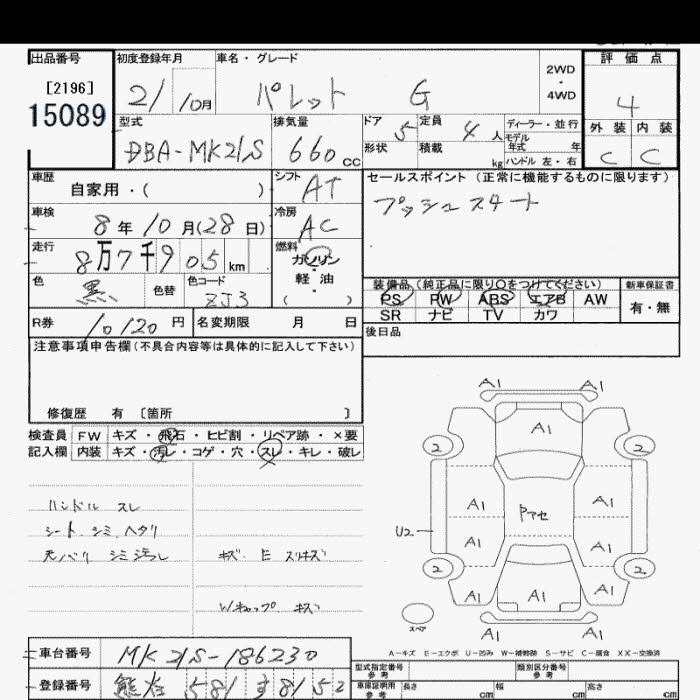 出品番号 初度登録年月 車名・グレード 評価点
[2196]
15089
21/10月 パレット G
2WD
・
4WD
4
型式 排気量 ドア 5 定員 4人 ディーラー・並行
DBA-MK21S 660cc
形状 積載 kg モデル年式 年
ハンドル 左・右
外装 内装
C C
車歴 自家用・( ) シフト AT
セールスポイント (正常に機能するものに限ります)
プッシュスタート
車検 8年10月(28日) 冷房 AC
走行 8万7千905km 燃料 ガソリン
・
軽油
( )
色 黒 色替 色コード ZJ3
装備品(純正品に限り○をつけてください) 新車保証書
PS PW ABS エアB AW 有・無
SR ナビ TV カワ
R券 10120円 名変期限 月 日
後日品
注意事項申告欄(不具合内容等は具体的に記入して下さい)
修復歴 有 〔箇所 〕
検査員 FW キズ・飛石・ヒビ割・リペア跡・×要
記入欄 内装 キズ・汚レ・コゲ・穴・スレ・キレ・破レ
ハンドル スレ
シート シミ ヘタリ
天バリ シミ汚レ キズ E スリキズ
Wキャップ キズ
A1 A1
A1
2 2
A1 A1
Pアセ
U2
A1 A1
2 2
A1 A1 A1
A1 A1
スペア
A-キズ E-エクボ U-凹み W-補修跡 S-サビ C-腐食 XX-交換済
車台番号 MK21S-186230
登録番号 581 8152
型式指定番号 参考 類別区分番号 参考
車庫証明用 参考 長さ cm 幅 cm 高さ cm